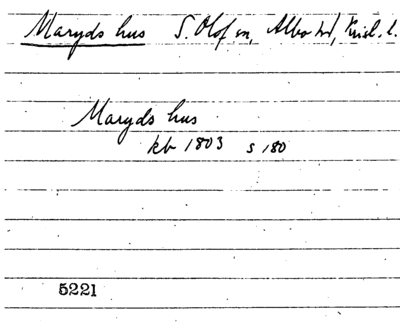 Maryds hus S. Olof sn, Albo hd, Krist. l.
Maryds hus
kb 1803 s 180
5221